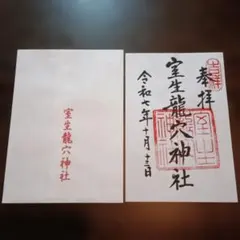 室生龍穴神社
奉拝
室生龍穴神社
令和七年十月十二日